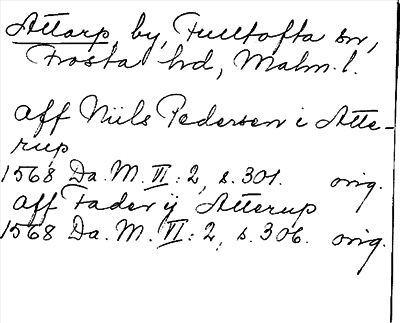 Attarp, by, Fulltofta sn,
Frosta hd, Malm. l.
aff Niils Pedersen i Atte-
rup
1568 Da. M. VI: 2, s. 301. orig.
aff Fader ij Atterup
1568 Da. M. VI: 2, s. 306. orig.